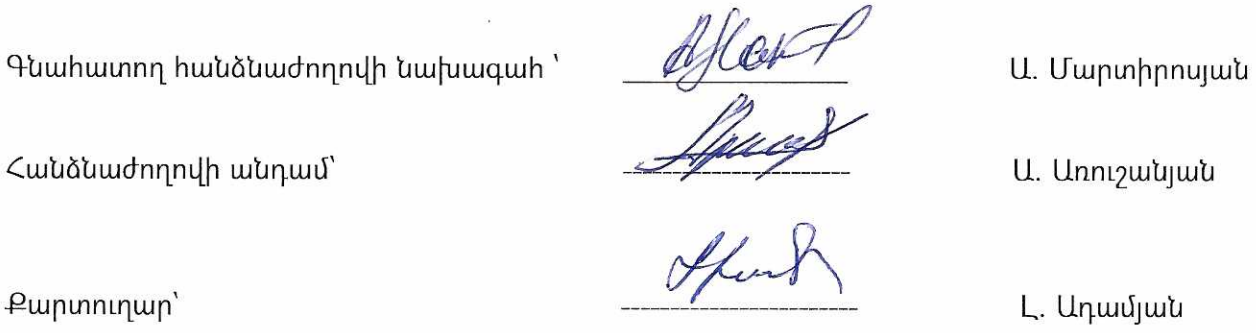 Գնահատող հանձնաժողովի նախագահ ՝ Ա. Մարտիրոսյան
Հանձնաժողովի անդամ՝ Ա. Առուշանյան
Քարտուղար՝ Լ. Ադամյան